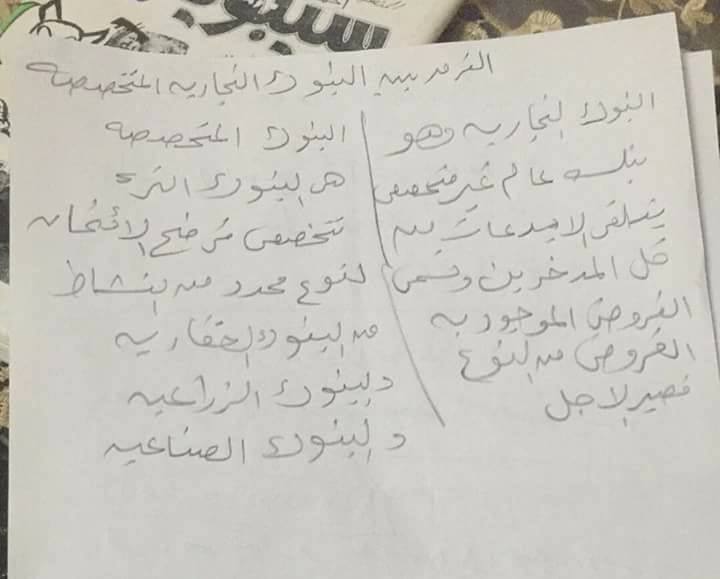 سيبو
الفرق بين البنوك التجاريه المتخصصه
البنوك التجاريه وهو
بنك عام غير متخصص
يتلقى الايدعات من
كل المدخرين وتسمى
القروض الموجود به
القروض من النوع
قصير الاجل
البنوك المتخصصه
هى البنوك التى
تتخصص فى منح الائتمان
لنوع محدد من النشاط
من البنوك العقاريه
والبنوك الزراعيه
والبنوك الصناعيه